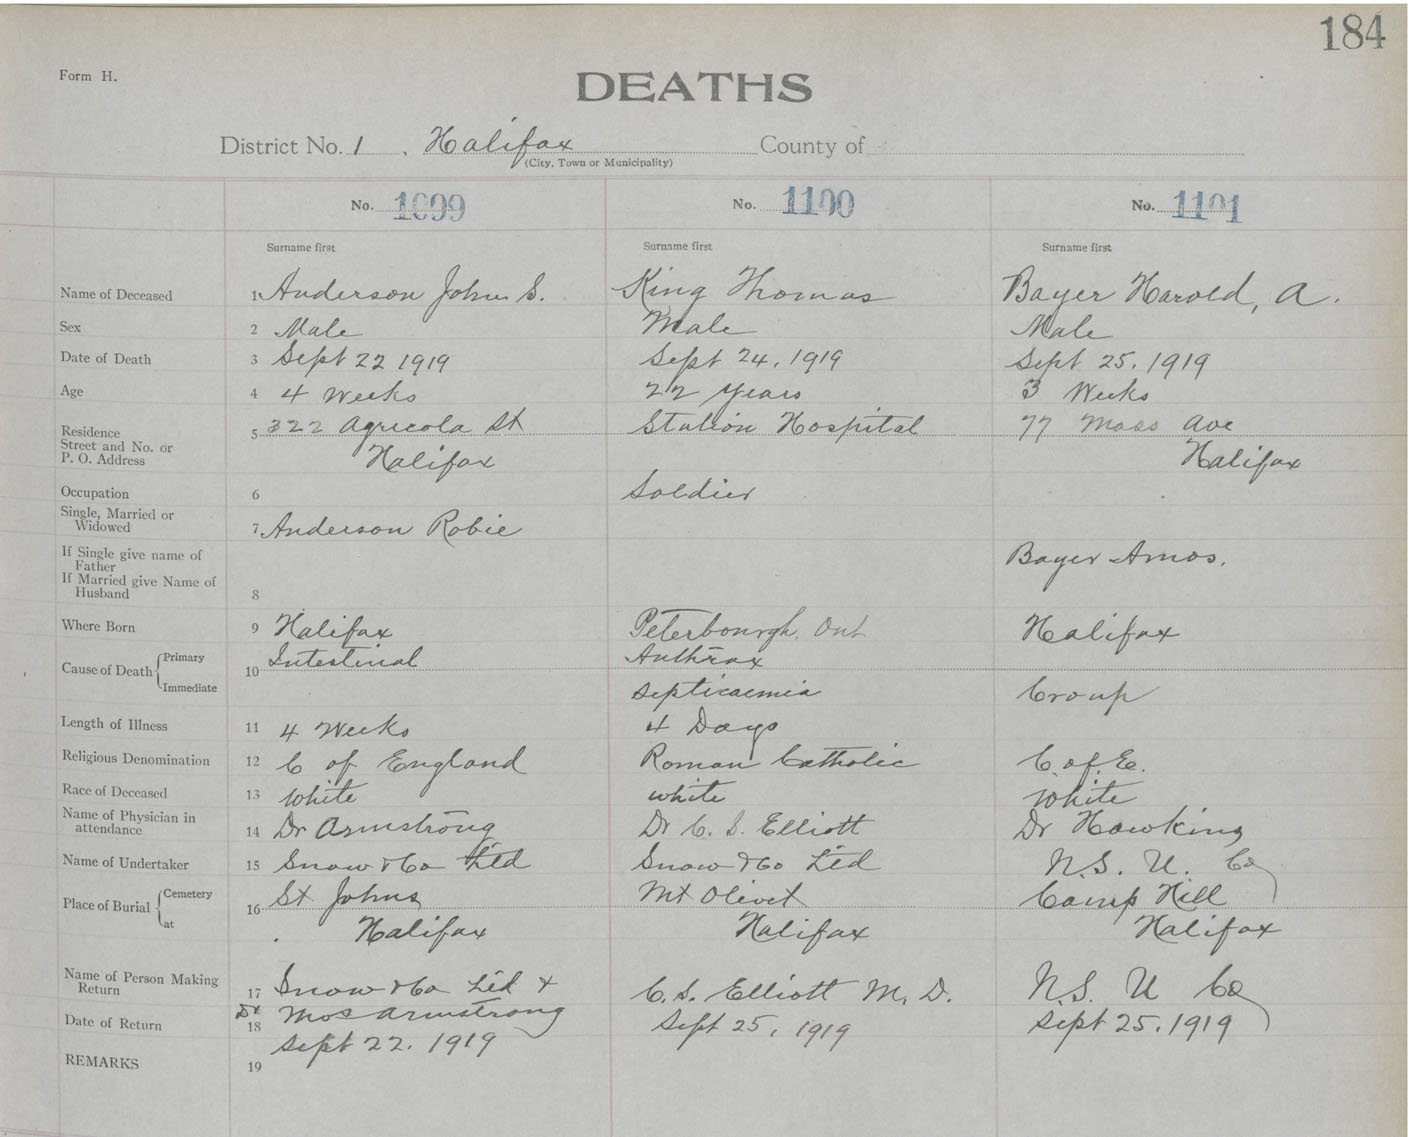 184
Form H.
DEATHS
District No. 1, Halifax County of
(City, Town or Municipality)
No. 1099 No. 1100 No. 1101
Surname first Surname first Surname first
Name of Deceased 1 Anderson John S. King Thomas Bayer Harold, A.
Sex 2 Male Male Male
Date of Death 3 Sept 22 1919 Sept 24, 1919 Sept 25, 1919
Age 4 4 Weeks 22 Years 3 Weeks
Residence
Street and No. or
P. O. Address 5 322 Agricola St Station Hospital 77 Moss Ave
Halifax Halifax
Occupation 6 Soldier
Single, Married or
Widowed 7 Anderson Robie
If Single give name of
Father Bayer Amos.
If Married give Name of
Husband 8
Where Born 9 Halifax Peterbourgh, Ont Halifax
Cause of Death Primary 10 Intestinal Anthrax
Immediate Septicaemia Croup
Length of Illness 11 4 Weeks 4 Days
Religious Denomination 12 C of England Roman Catholic C. of. E.
Race of Deceased 13 White White White
Name of Physician in
attendance 14 Dr Armstrong Dr C. S. Elliott Dr Hawkins
Name of Undertaker 15 Snow & Co Ltd Snow & Co Ltd N.S. U. Co
Place of Burial Cemetery 16 St Johns Mt Olivet Camp Hill
at Halifax Halifax Halifax
Name of Person Making
Return 17 Snow & Co Ltd + C. S. Elliott M. D. N.S. U Co
Dr Armstrong
Date of Return 18 Sept 22. 1919 Sept 25, 1919 Sept 25. 1919
REMARKS 19